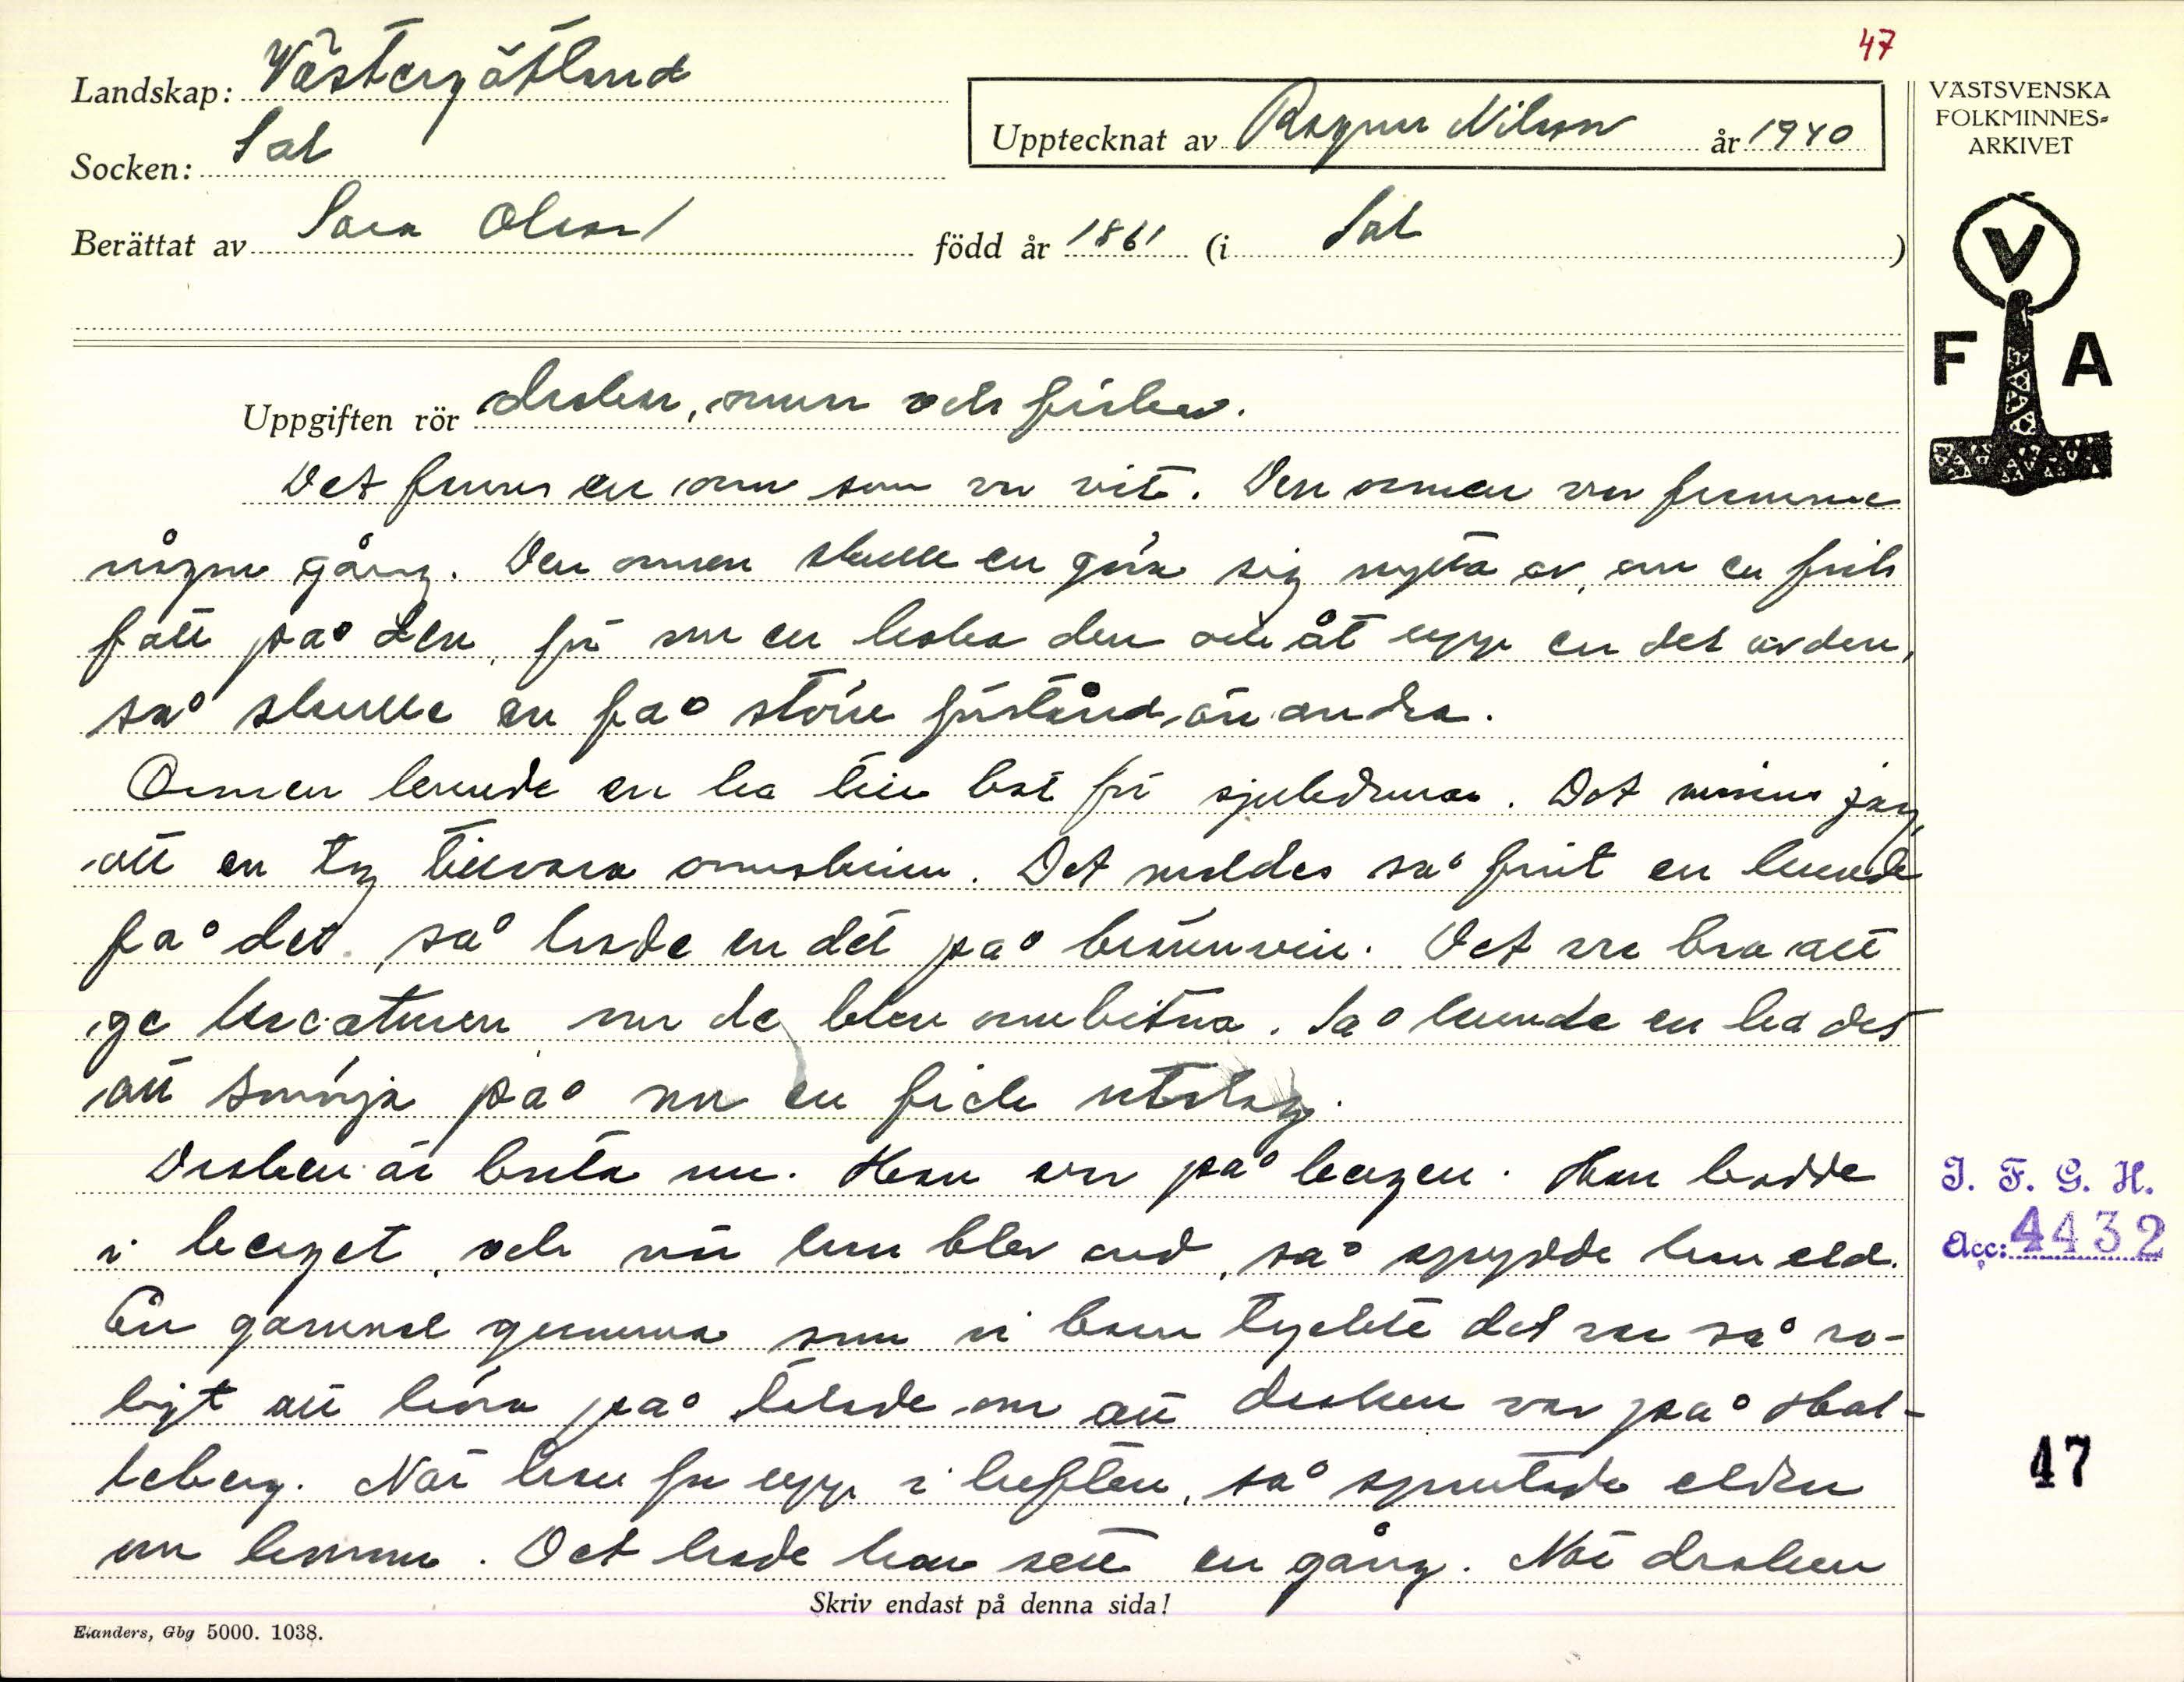 47
Landskap: Västergötland
Socken: Sal
Upptecknat av Ragnar Nilsson år 1940
Berättat av Sara Olsson född år 1861 (i Sal)
VÄSTSVENSKA
FOLKMINNES-
ARKIVET
V
F A
Uppgiften rör draken, ormar och
Det finns en orm som var vit. Den ormen var framme
någon gång. Den ormen skulle en göra sig nytta av, om en fick
fatt på den, för om en koka den och åt upp en del av den,
så skulle en få större förstånd än andra.
Ormen kunde en ha till bot för sjukdomar. Det minns jag,
att en tog tillvara ormskinn. Det maldes så fint en kunde
få det, så hade en det på brännvin. Det var bra att
ge kreaturen om de blev ormbitna. Så kunde en ha det
att smörja på om en fick utslag.
Draken är borta nu. Han var på bergen. Han bodde
i berget, och när han blev ond, så spydde han eld.
En gammal gumma som vi barn tyckte det var så ro-
ligt att höra på talade om att draken var på Hal-
leberg. När han for upp i luften, så sprutade elden
om honom. Det hade hon sett en gång. När draken
Skriv endast på denna sida!
Elanders, Gbg 5000. 1038.
I. F. G. H.
Acc: 4432
47